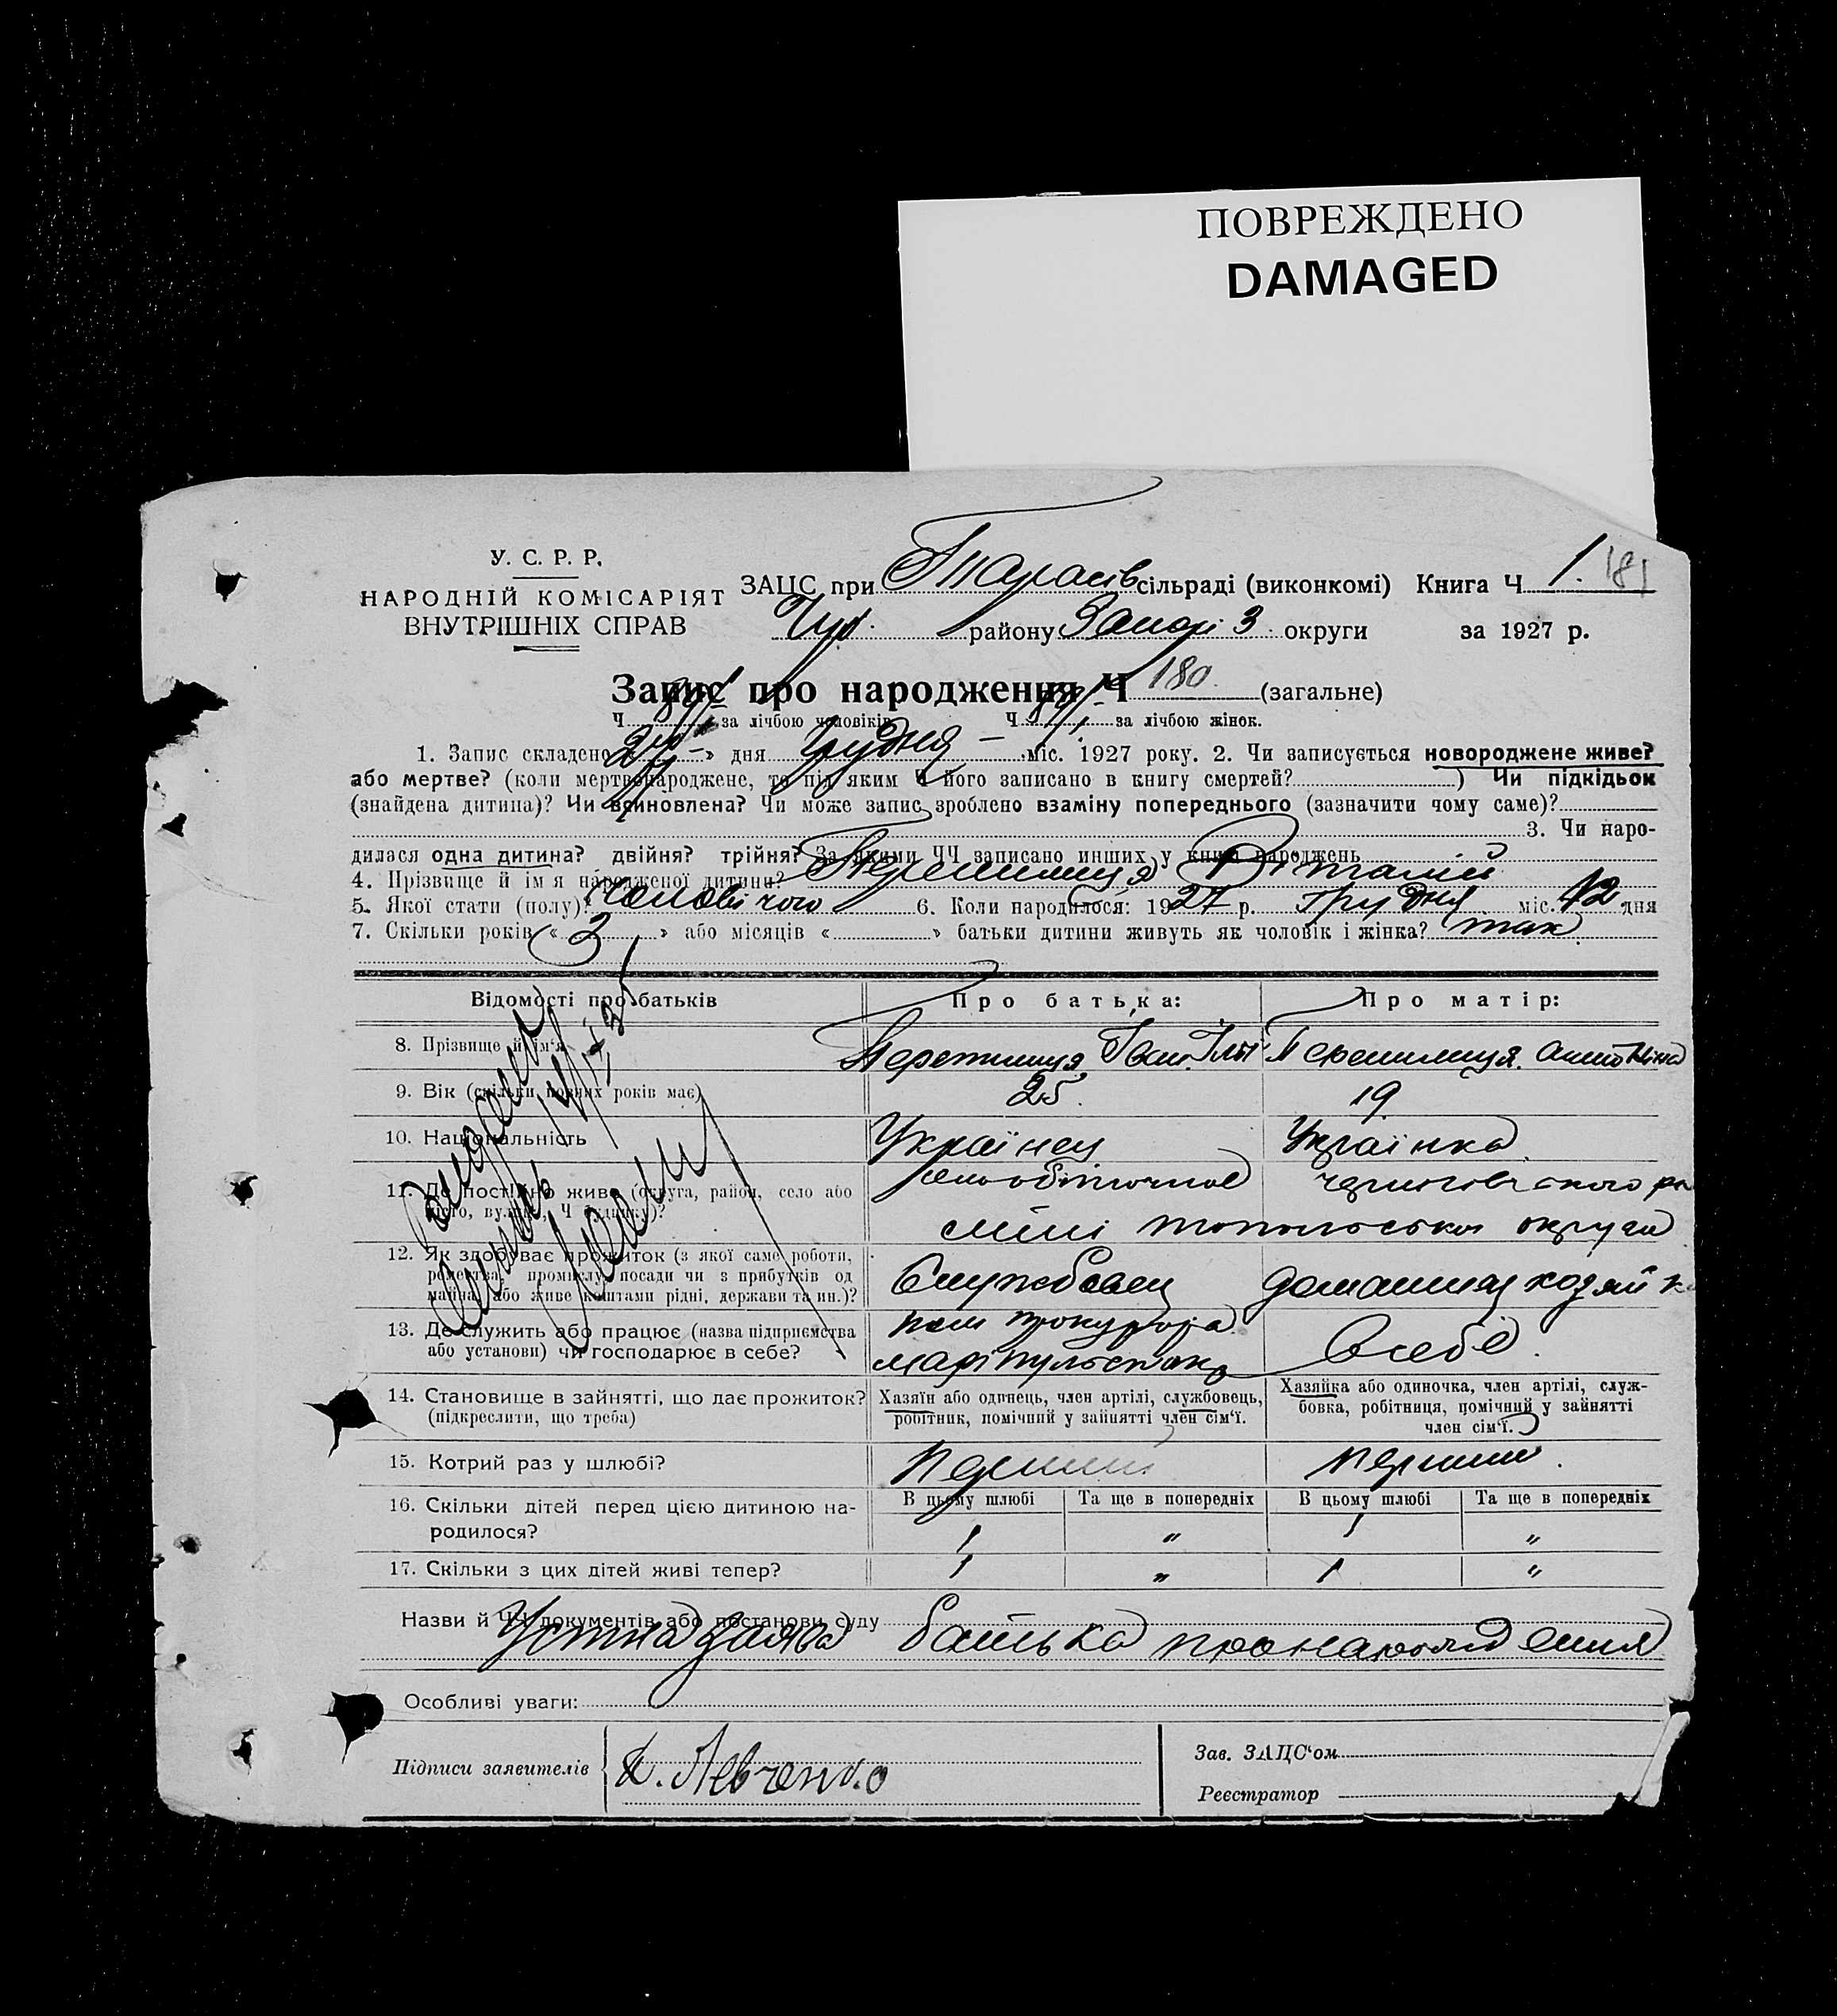 ПОВРЕЖДЕНО
DAMAGED
У. С. Р. Р.
НАРОДНІЙ КОМІСАРІЯТ
ВНУТРІШНІХ СПРАВ
ЗАЦС при Тарасів сільраді (виконкомі) Книга Ч 1. 181
Чуб. району Запорі з округи за 1927 р.
Запис про народження Ч 180 (загальне)
Ч за лічбою чоловіків Ч за лічбою жінок.
1. Запис складено « 24 » дня Грудня міс. 1927 року. 2. Чи записується новороджене живе?
або мертве? (коли мертвонароджене, то під яким Ч його записано в книгу смертей? ) Чи підкідьок
(знайдена дитина)? Чи всиновлена? Чи може запис зроблено взаміну попереднього (зазначити чому саме)?
3. Чи наро-
дилася одна дитина? двійня? трійня? За якими ЧЧ записано инших у книзі народжень
4. Прізвище й ім'я народженої дитини? Перетилиця Віталій
5. Якої стати (полу)? Чоловічого 6. Коли народилося: 1927 р. грудня міс. 12 дня
7. Скільки років « 3 » або місяців « » батьки дитини живуть як чоловік і жінка? так
Відомості про батьків Про батька: Про матір:
8. Прізвище й ім'я Іван
9. Вік (скільки повних років має) 25. 19
10. Національність Українец Українка
11. Де постійно живе (округа, район, село або
місто, вулиця, Ч будинку)? округи
12. Як здобуває прожиток (з якої саме роботи, Службовец домашняя хозяйк
ремества, промислу, посади чи з прибутків од
майна, або живе коштами рідні, держави та ин.)?
13. Де служить або працює (назва підприємства пом прокурора всебе.
або установи) чи господарює в себе?
14. Становище в зайнятті, що дає прожиток? Хазяїн або одинець, член артілі, службовець, Хазяйка або одиночка, член артілі, служ-
(підкреслити, що треба) робітник, помічний у зайнятті член сім'ї. бовка, робітниця, помічний у зайнятті
член сім'ї.
15. Котрий раз у шлюбі? Перший Перший.
16. Скільки дітей перед цією дитиною на- В цьому шлюбі Та ще в попередніх В цьому шлюбі Та ще в попередніх
родилося? 1 " 1 "
17. Скільки з цих дітей живі тепер? 1 " 1 "
Назви й ЧЧ документів або постанови суду
Устна заява батька про народження
Особливі уваги:
Підписи заявителів Левченко
Зав. ЗАЦС'ом
Реєстратор